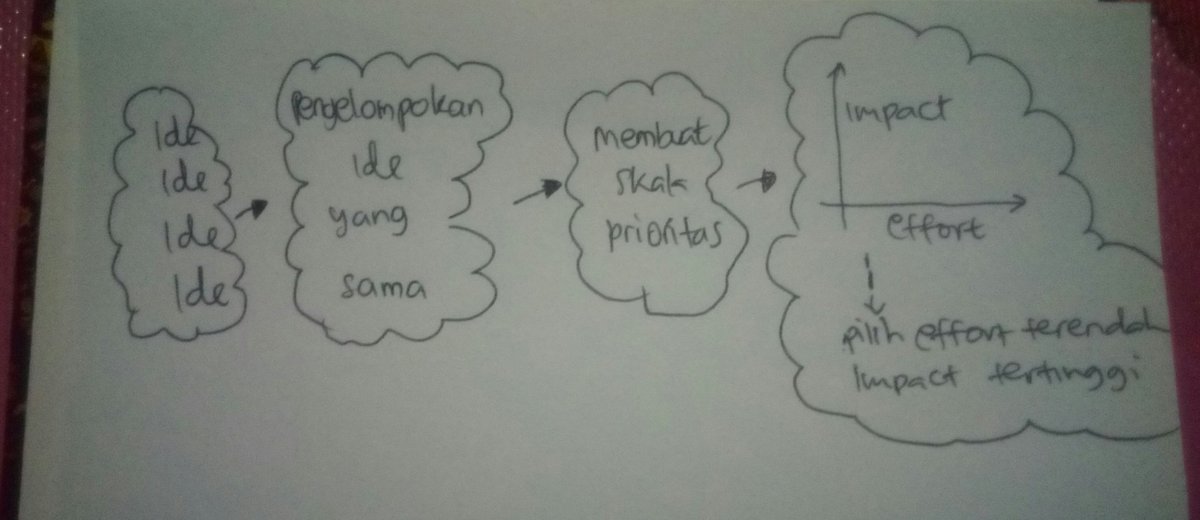 Ide
Ide
Ide
Ide
Pengelompokan
ide
yang
sama
membuat
skala
prioritas
impact
effort
pilih effort terendah
Impact tertinggi